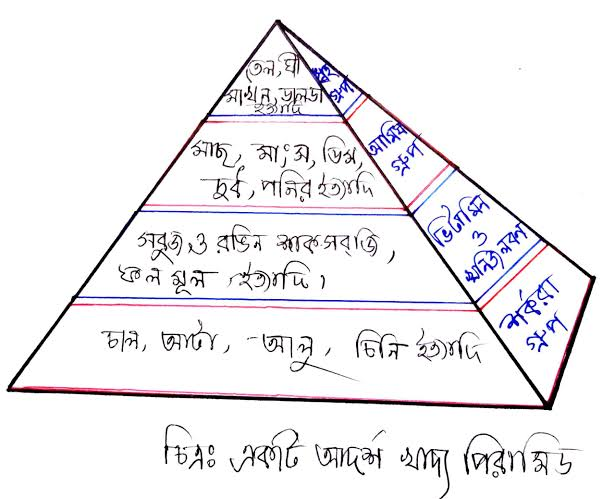 তেল, ঘী
মাখন, ডালডা
ইত্যাদি
স্নেহ
গ্রুপ
মাছ, মাংস, ডিম,
দুধ, পনির ইত্যাদি
আমিষ
গ্রুপ
সবুজ ও রঙিন শাকসবজি,
ফলমূল ইত্যাদি।
ভিটামিন
ও
খনিজ লবণ
চাল, আটা, আলু, চিনি ইত্যাদি
শর্করা
গ্রুপ
চিত্রঃ একটি আদর্শ খাদ্য পিরামিড